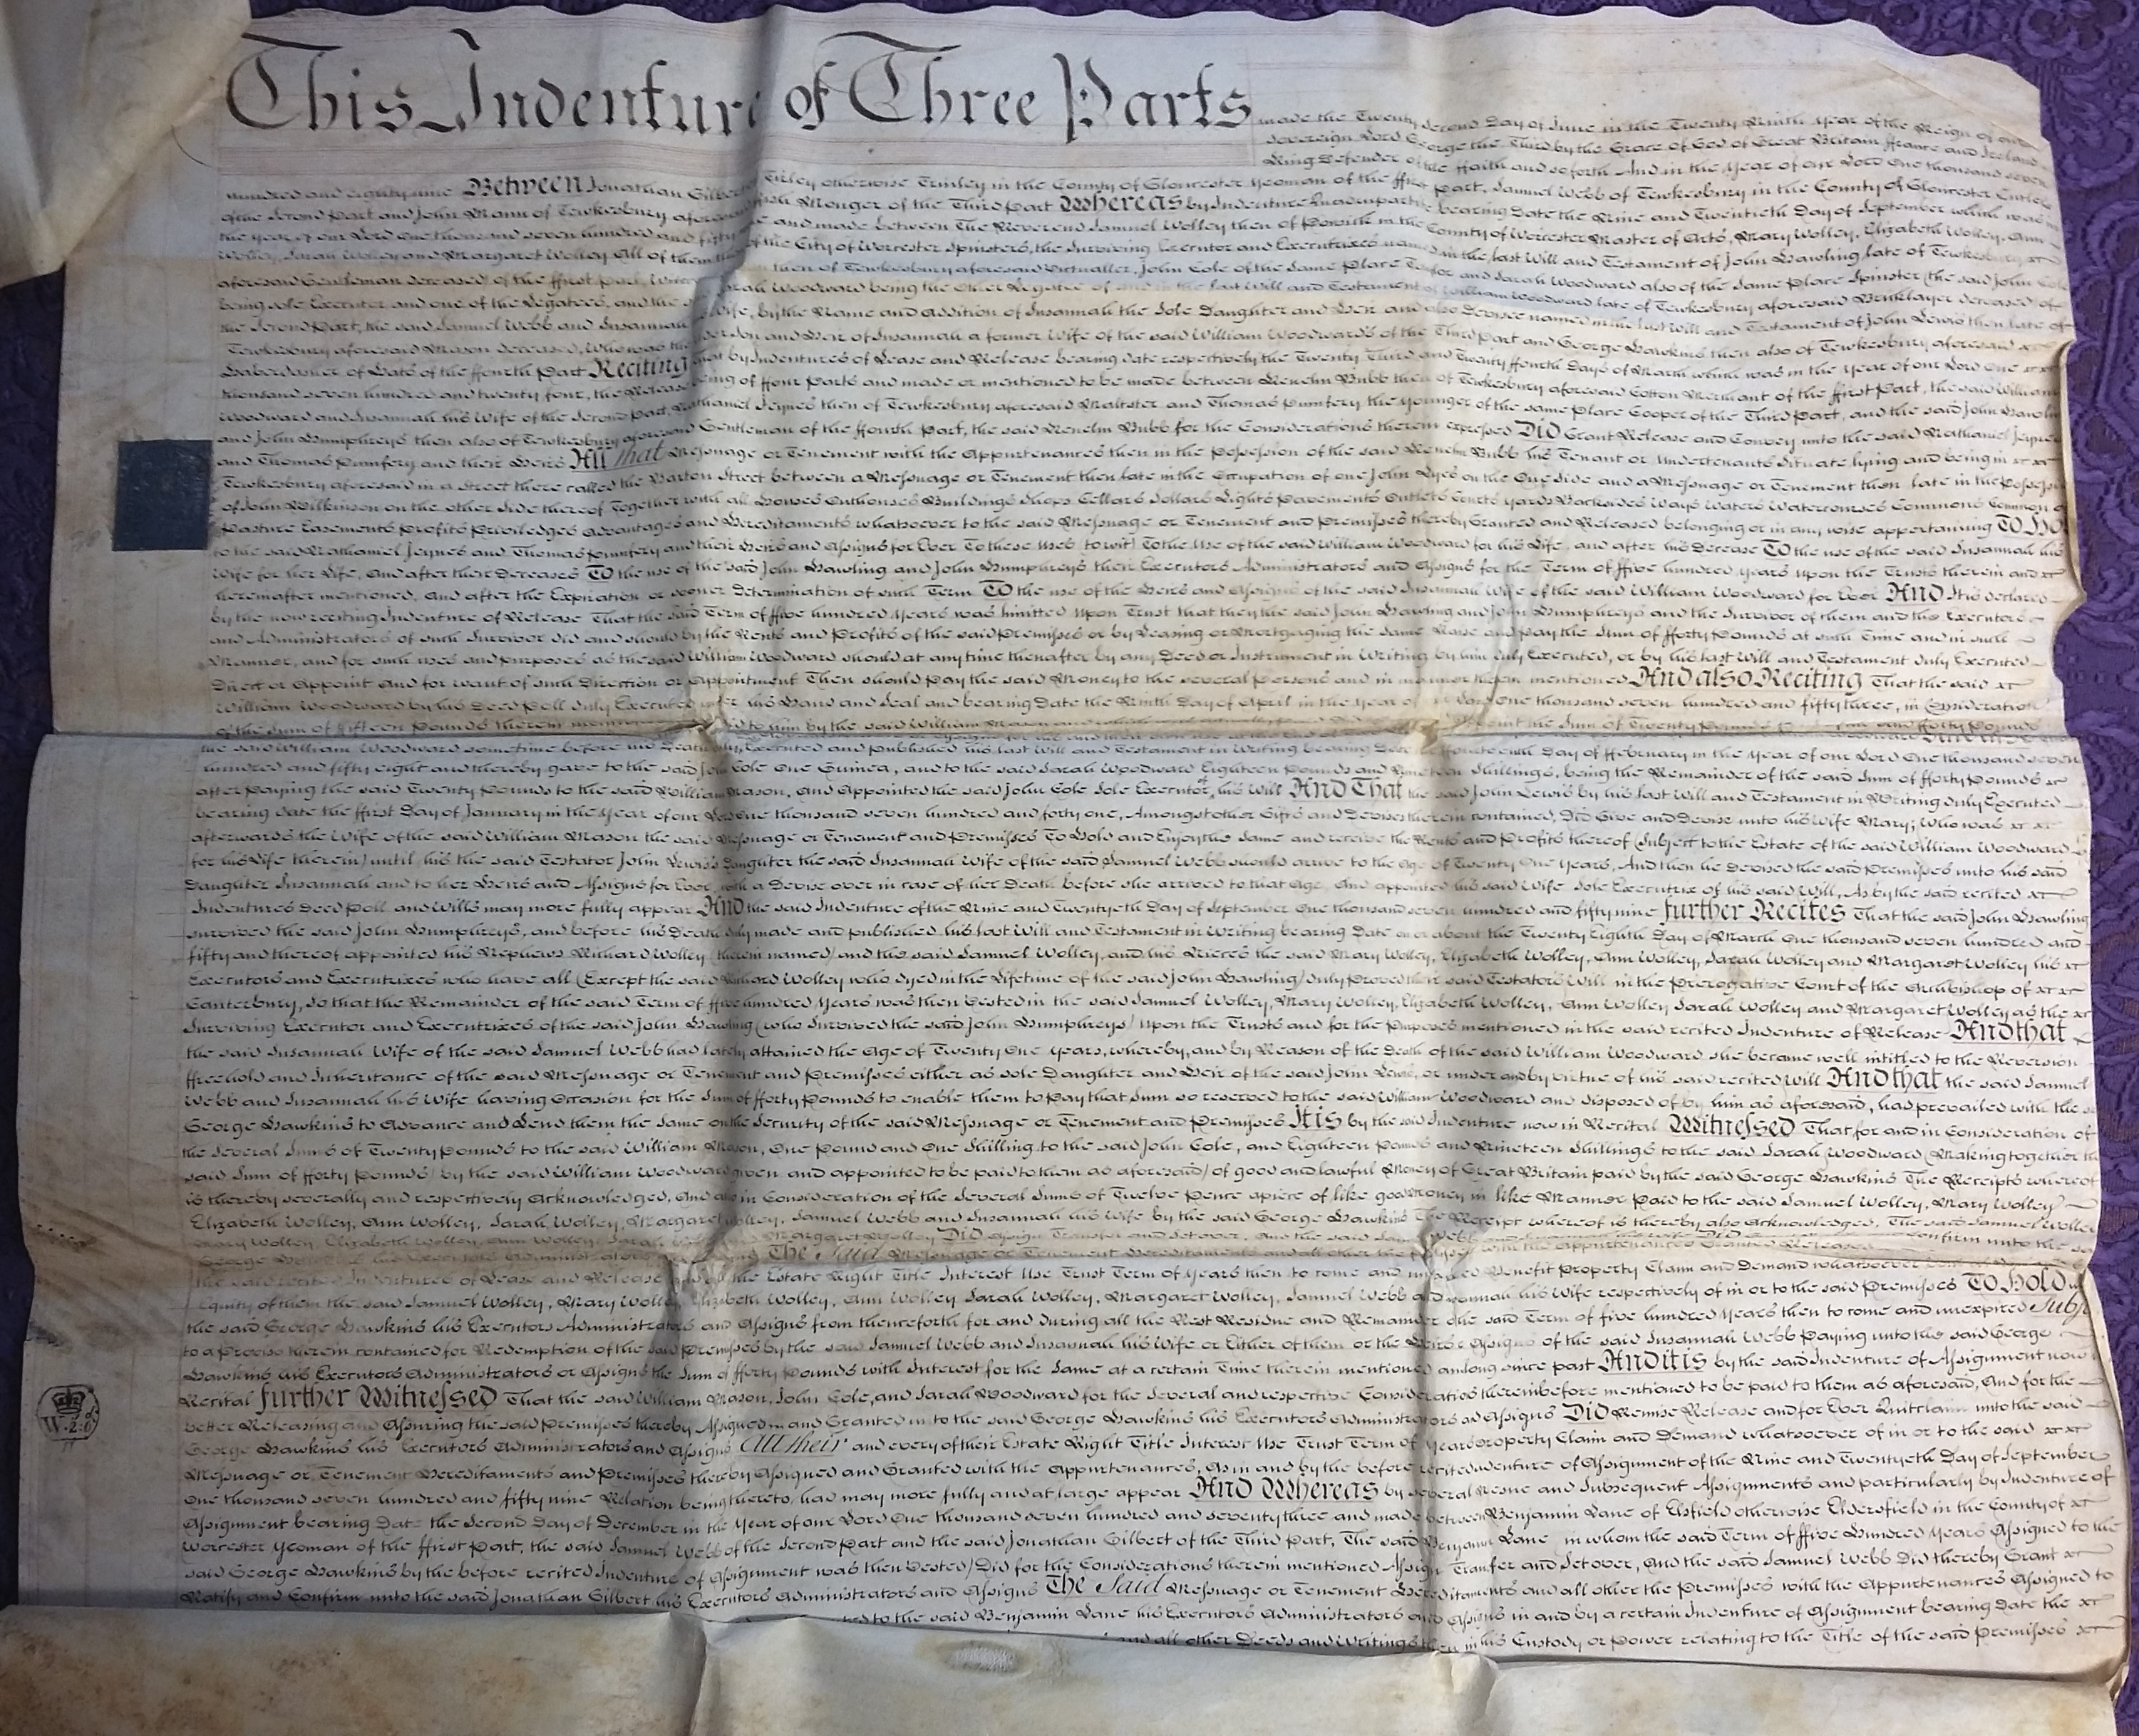 This Indenture of Three Parts made the Twenty Second Day of June in the Twenty Ninth Year of the Reign of our
Sovereign Lord George the Third by the Grace of God of Great Britain ffrance and Ireland
King Defender of the ffaith and so forth And in the Year of our Lord One thousand seven
hundred and eighty nine Between Jonathan Gilbert Tirley otherwise Trinley in the County of Gloucester Yeoman of the ffirst Part, Samuel Webb of Tewkesbury in the County of Gloucester Cutler
of the Second Part and John Mann of Tewkesbury aforesaid Monger of the Third Part Whereas by Indenture Quadrupartite bearing Date the Nine and Twentieth Day of September which was in
the Year of our Lord One thousand seven hundred and fifty and made between The Reverend Samuel Wolley then of Powick in the County of Worcester Master of Arts, Mary Wolley, Elizabeth Wolley, Ann
Wolley, Sarah Wolley and Margaret Wolley All of them of the City of Worcester Spinsters, the Surviving Executor and Executrixes named in the last Will and Testament of John Hawling late of Tewkesbury
aforesaid Gentleman deceased of the ffirst Part, then of Tewkesbury aforesaid Victualler, John Cole of the same Place and Sarah Woodward also of the same Place Spinster (the said John Cole
being sole Executor and one of the Legatees, and the Sarah Woodward being the Other Legatee of and in the last Will and Testament of William Woodward late of Tewkesbury aforesaid Bricklayer deceased) of
the Second Part, the said Samuel Webb and Susannah Wife, by the Name and addition of Susannah the Sole Daughter and Heir and also Devisee named in the last Will and Testament of John Lewis then late of
Tewkesbury aforesaid Mason deceased, Who was the Son and Heir of Susannah a former Wife of the said William Woodward of the Third Part and George Hawkins then also of Tewkesbury aforesaid
Haberdasher of Hats of the ffourth Part Reciting that by Indentures of Lease and Release bearing date respectively the Twenty Third and Twenty ffourth Days of March which was in the Year of our Lord One
thousand seven hundred and twenty four, the Release being of ffour Parts and made or mentioned to be made between Kenelm Bubb then of Tewkesbury aforesaid Cotton Merchant of the ffirst Part, the said William
Woodward and Susannah his Wife of the Second Part, Nathaniel Jeynes then of Tewkesbury aforesaid Maltster and Thomas Pumfery the younger of the same Place Cooper of the Third Part, and the said John Hawling
and John Humphreys then also of Tewkesbury aforesaid Gentleman of the ffourth Part, the said Kenelm Bubb for the Considerations therein expressed Did Grant Release and Convey unto the said Nathaniel Jeynes
and Thomas Pumfery and their Heirs All that Messuage or Tenement with the Appurtenances then in the Possession of the said Kenelm Bubb his Tenant or Undertenants Situate lying and being in
Tewkesbury aforesaid in a Street there called the Barton Street between a Messuage or Tenement then late in the Occupation of one John Dyes on the One Side and a Messuage or Tenement then late in the Possession
of John Wilkinson on the other Side thereof Together with all Houses Outhouses Buildings Shops Cellars Sollars Lights Pavements Outlets Courts Yards Backsides Ways Waters Watercourses Commons Common of
Pasture Easements Profits Priviledges Advantages and Hereditaments whatsoever to the said Messuage or Tenement and Premisses thereby Granted and Released belonging or in any wise appertaining To Ho
to the said Nathaniel Jeynes and Thomas Pumfery and their Heirs and Assigns for Ever To these Uses (to wit) To the Use of the said William Woodward for his Life, and after his Decease To the use of the said Susannah his
Wife for her Life, And after their Deceases To the use of the said John Hawling and John Humphreys their Executors Administrators and Assigns for the Term of ffive hundred Years Upon the Trusts therein and
hereinafter mentioned, And after the Expiration or sooner Determination of such Term To the use of the Heirs and Assigns of the said Susannah Wife of the said William Woodward for Ever And It is declared
by the now reciting Indenture of Release That the said Term of ffive hundred Years was limitted Upon Trust that they the said John Hawling and John Humphreys and the Survivor of them and the Executors
and Administrators of such Survivor did and should by the Rents and Profits of the said Premisses or by Leasing or Mortgaging the same Raise and pay the Sum of fforty Pounds at such Time and in such
Manner, and for such uses and purposes as the said William Woodward should at any time thenafter by any Deed or Instrument in Writing by him duly Executed, or by his last Will and Testament duly Executed
Direct or Appoint And for want of such Direction or Appointment Then should Pay the said Money to the several Persons and in manner therein mentioned And also Reciting That the said
William Woodward by his Deed Poll duly Executed under his Hand and Seal and bearing Date the Ninth Day of April in the Year of Lord One thousand seven hundred and fifty three, in Consideration
of the Sum of fifteen Pounds therein mentioned to him by the said William Mason the Sum of Twenty Pounds fforty Pounds
the said William Woodward sometime before his Death duly Executed and published his last Will and Testament in Writing bearing Date ffourteenth Day of ffebruary in the Year of our Lord One thousand seven
hundred and fifty eight and thereby gave to the said John Cole One Guinea, and to the said Sarah Woodward Eighteen Pounds and Nineteen Shillings, being the Remainder of the said Sum of fforty Pounds
after Paying the said Twenty Pounds to the said William Mason, And Appointed the said John Cole Sole Executor of his Will And That the said John Lewis by his last Will and Testament in Writing duly Executed
bearing date the ffirst Day of January in the Year of our Lord One thousand seven hundred and forty one, Amongst other Gifts and Devises therein contained, Did Give and Devise unto his Wife Mary; Who was
afterwards the Wife of the said William Mason the said Messuage or Tenement and Premisses To Hold and Enjoy the same and receive the Rents and Profits thereof (Subject to the Estate of the said William Woodward
for his Life therein) until his the said Testator John Lewis's Daughter the said Susannah Wife of the said Samuel Webb should arrive to the Age of Twenty One Years, And then he Devised the said Premisses unto his said
Daughter Susannah and to her Heirs and Assigns for Ever, with a Devise over in case of her Death before she arrived to that Age, And appointed his said Wife Sole Executrix of his said Will, As by the said recited
Indentures Deed Poll and Wills may more fully appear And the said Indenture of the Nine and Twentyeth Day of September One thousand seven hundred and fifty nine further Recites That the said John Hawling
survived the said John Humphreys, and before his Death duly made and published his last Will and Testament in Writing bearing Date on or about the Twenty Eighth Day of March One thousand seven hundred and
fifty and thereof appointed his Nephews Richard Wolley (therein named) and the said Samuel Wolley, and his Nieces the said Mary Wolley, Elizabeth Wolley, Ann Wolley, Sarah Wolley and Margaret Wolley his
Executors and Executrixes who have all (Except the said Richard Wolley who dyed in the Lifetime of the said John Hawling) duly Proved their said Testators Will in the Prerogative Court of the Archbishop of
Canterbury, So that the Remainder of the said Term of ffive hundred Years was then Vested in the said Samuel Wolley, Mary Wolley, Elizabeth Wolley, Ann Wolley Sarah Wolley and Margaret Wolley as the
Surviving Executor and Executrixes of the said John Hawling (who Survived the said John Humphreys) Upon the Trusts and for the Purposes mentioned in the said recited Indenture of Release And that
the said Susannah Wife of the said Samuel Webb had lately attained the Age of Twenty One Years, whereby, and by Reason of the Death of the said William Woodward she became well intitled to the Reversion
ffreehold and Inheritance of the said Messuage or Tenement and Premisses either as sole Daughter and Heir of the said John Lewis, or under and by virtue of his said recited Will And that the said Samuel
Webb and Susannah his Wife having Occasion for the Sum of fforty Pounds to enable them to Pay that Sum so reserved to the said William Woodward and disposed of by him as aforesaid, had prevailed with the
George Hawkins to Advance and Lend them the same on the Security of the said Messuage or Tenement and Premisses It is by the said Indenture now in Recital Witnessed That for and in Consideration of
the several Sums of Twenty Pounds to the said William Mason, One Pound and One Shilling to the said John Cole, and Eighteen Pounds and Nineteen Shillings to the said Sarah Woodward (Making together the
said Sum of fforty Pounds) by the said William Woodward given and appointed to be paid to them as aforesaid) of good and lawful Money of Great Britain paid by the said George Hawkins The Receipts whereof
is thereby severally and respectively Acknowledged, And also in Consideration of the Several Sums of Twelve Pence apiece of like good Money in like Manner Paid to the said Samuel Wolley, Mary Wolley
Elizabeth Wolley, Ann Wolley, Sarah Wolley, Margaret Wolley, Samuel Webb and Susannah his Wife by the said George Hawkins The Receipt whereof is thereby also Acknowledged, The said Samuel Wolley
Mary Wolley, Elizabeth Wolley, Ann Wolley, Sarah Margaret Wolley Did Assign Transfer and Set over, And the said Webb and Susannah his Wife Did Confirm unto the
George The Said Messuage or Tenement Hereditaments and all other the with the Appurtenances Granted Released
the said recited Indentures of Lease and Release and all the Estate Right Title Interest Use Trust Term of Years then to come and Benefit Property Claim and Demand whatsoever
Equity of them the said Samuel Wolley, Mary Wolley, Elizabeth Wolley, Ann Wolley Sarah Wolley, Margaret Wolley, Samuel Webb and Susannah his Wife respectively of in or to the said Premisses To Hold
the said George Hawkins his Executors Administrators and Assigns from thenceforth for and during all the Rest Residue and Remainder of the said Term of five hundred Years then to come and unexpired Subj
to a Proviso therein contained for Redemption of the said Premisses by the said Samuel Webb and Susannah his Wife or Either of them or the Heirs or Assigns of the said Susannah Webb Paying unto the said George
Hawkins his Executors Administrators or Assigns the Sum of fforty Pounds with Interest for the same at a certain Time therein mentioned and long since past And it is by the said Indenture of Assignment now
Recital further Witnessed That the said William Mason, John Cole, and Sarah Woodward for the several and respective Considerations thereinbefore mentioned to be paid to them as aforesaid, And for the
better Releasing and Assuring the said Premisses thereby Assigned and Granted in to the said George Hawkins his Executors Administrators and Assigns Did Remise Release and for Ever Quitclaim unto the said
George Hawkins his Executors Administrators and Assigns All their and every of their Estate Right Title Interest Use Trust Term of Years Property Claim and Demand whatsoever of in or to the said
Messuage or Tenement Hereditaments and Premisses thereby Assigned and Granted with the Appurtenances, As in and by the before recited Indenture of Assignment of the Nine and Twentyeth Day of September
One thousand seven hundred and fifty nine Relation being thereto had may more fully and at large appear And Whereas by several Mesne and Subsequent Assignments and particularly by Indenture of
Assignment bearing Date the Second Day of December in the Year of our Lord One thousand seven hundred and seventy three and made between Benjamin Lane of Elsfield otherwise Eldersfield in the County of
Worcester Yeoman of the ffirst Part, the said Samuel Webb of the Second Part and the said Jonathan Gilbert of the Third Part, The said Benjamin Lane in whom the said Term of ffive Hundred Years Assigned to the
said George Hawkins by the before recited Indenture of Assignment was then Vested) Did for the Considerations therein mentioned Assign Transfer and Set over, And the said Samuel Webb Did thereby Grant
Ratify and Confirm unto the said Jonathan Gilbert his Executors Administrators and Assigns The Said Messuage or Tenement Hereditaments and all other the Premisses with the Appurtenances Assigned to
to the said Benjamin Lane his Executors Administrators and Assigns in and by a certain Indenture of Assignment bearing Date the
and all other Deeds and Writings then in his Custody or Power relating to the Title of the said Premisses